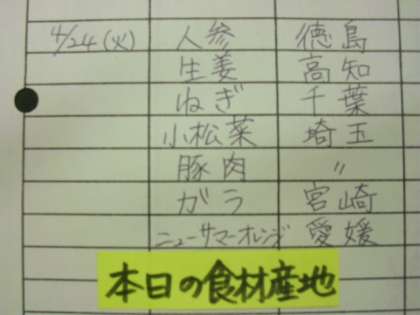 4/24(火) 人参 徳島
生姜 高知
ねぎ 千葉
小松菜 埼玉
豚肉 〃
ガラ 宮崎
ニューサマーオレンジ 愛媛
本日の食材産地